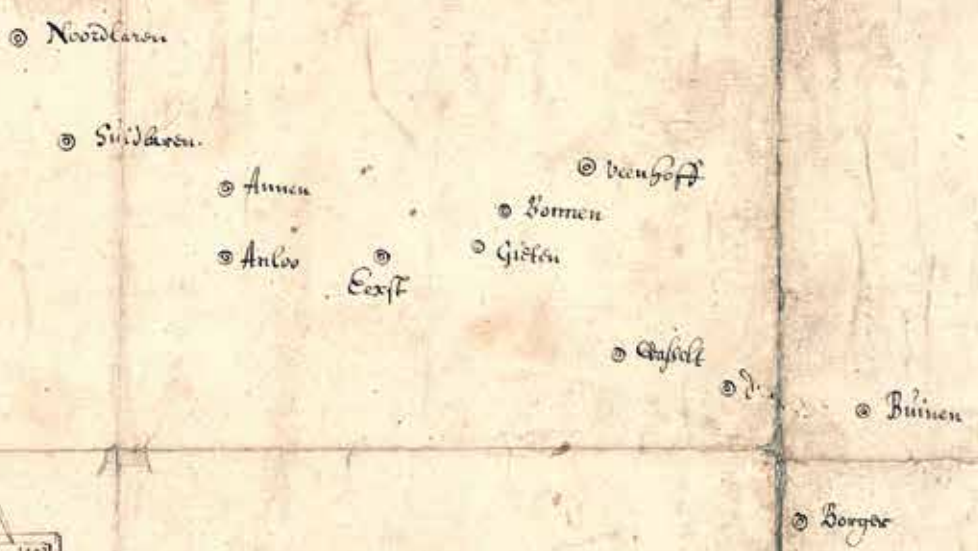 Noordlaren
Suidlaren.
Annen
veenhoff
Bonnen
Anloo
Gieten
Eexst
Gasselt
d.
Buinen
Borger